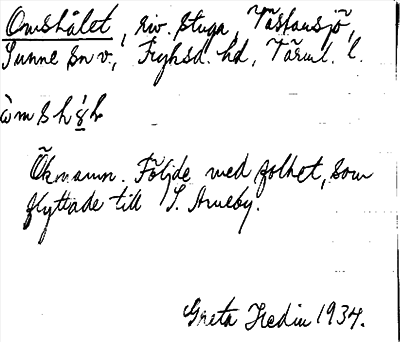 Omshålet, riv. stuga, Västansjö,
Sunne sn v., Fryksd. hd, Värml. l.
Öknamn. Följde med folket, som
flyttade till S. Ameby.
Greta Hedin 1934.